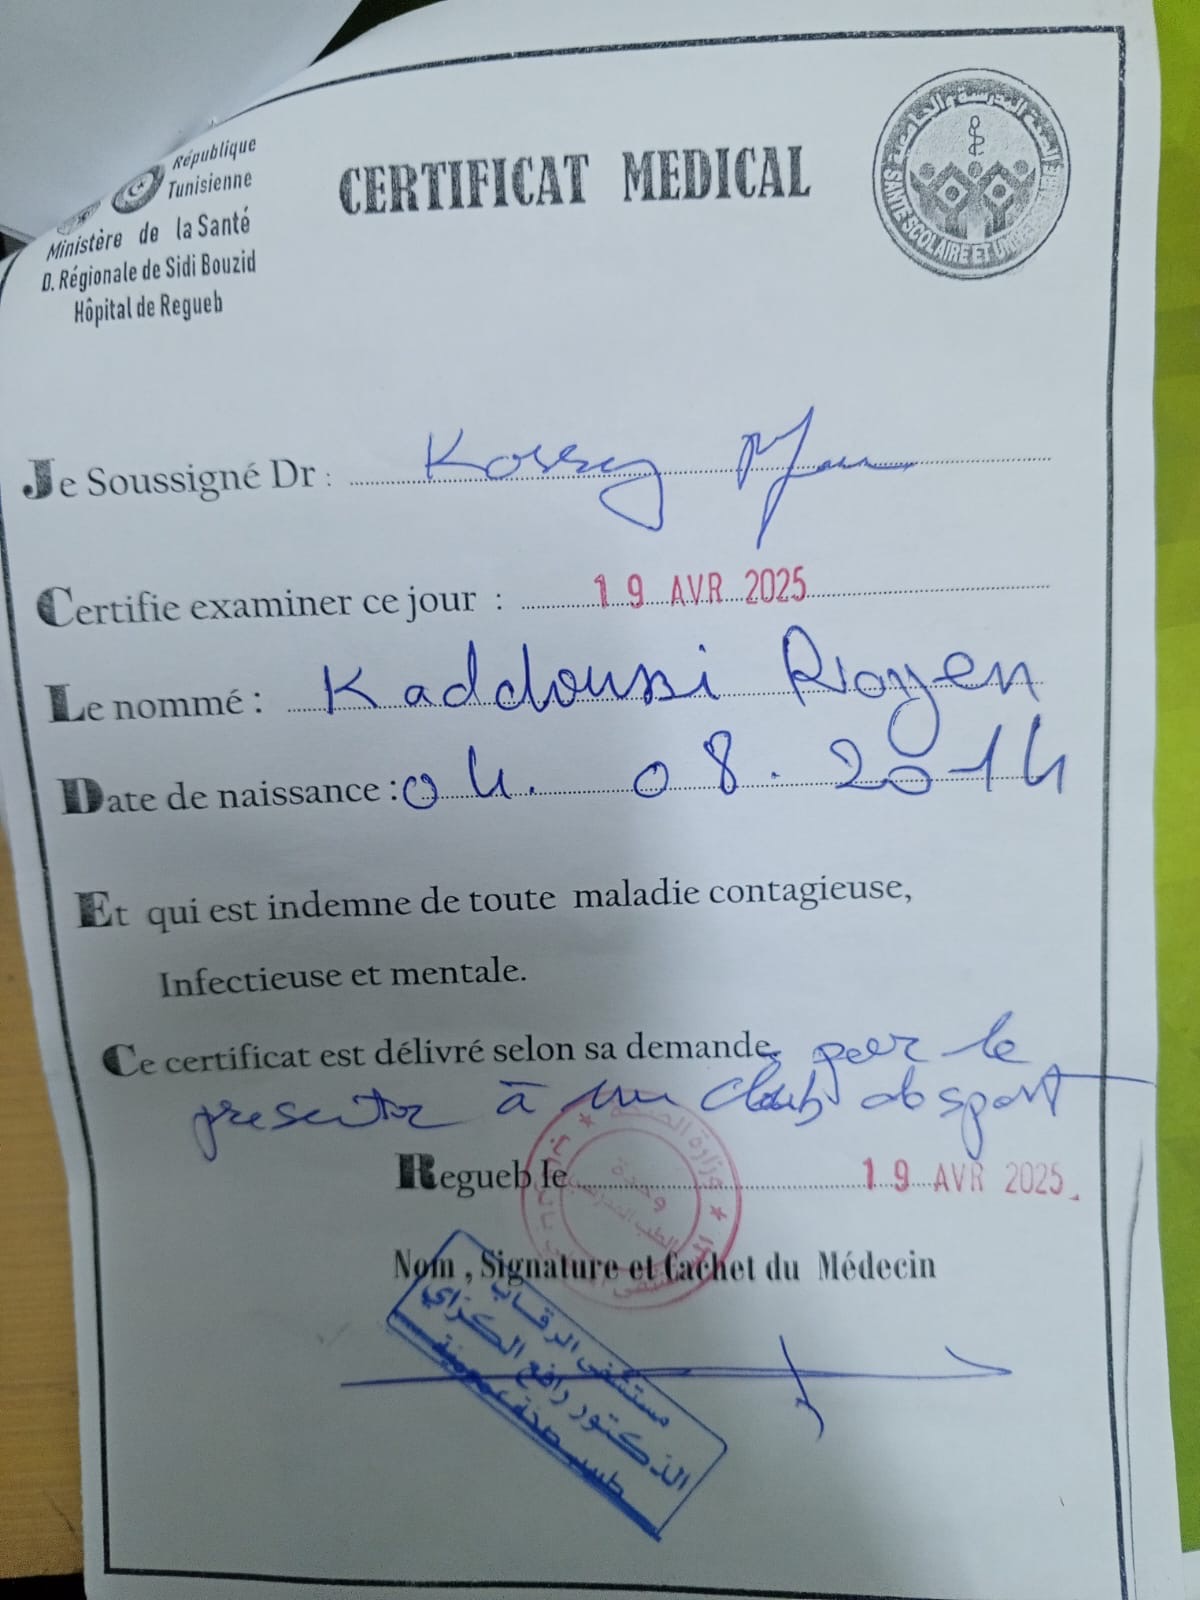 République
Tunisienne
Ministère de la Santé
D. Régionale de Sidi Bouzid
Hôpital de Regueb
CERTIFICAT MEDICAL
SANTE SCOLAIRE ET UNIVERSITAIRE
Je Soussigné Dr :
Certifie examiner ce jour : 19 AVR 2025
Le nommé : Kaddoussi Rayen
Date de naissance : 04. 08. 2014
Et qui est indemne de toute maladie contagieuse,
Infectieuse et mentale.
Ce certificat est délivré selon sa demande, pour le
presenter à un club de sport
Regueb le 19 AVR 2025
Nom , Signature et Cachet du Médecin
مستشفى الرقاب
الدكتور رافع الكزاي
طبيب صحة عمومية